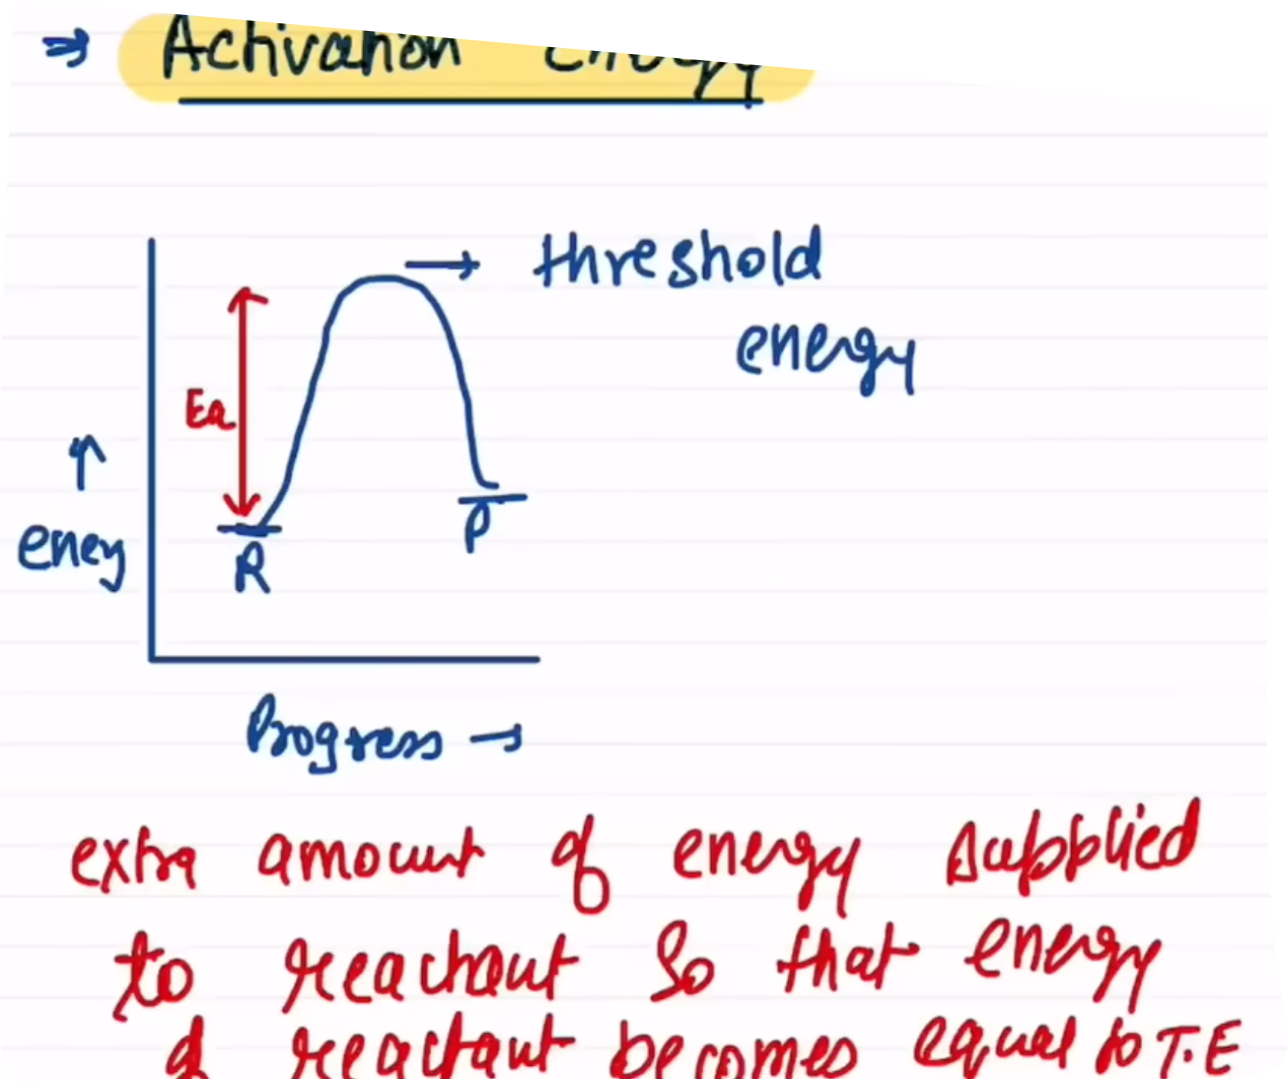 ⇒ Activation Energy
→ threshold
energy
Ea
↑
eney
R
P
Progress →
extra amount of energy supplied
to reactant so that energy
of reactant becomes equal to T.E